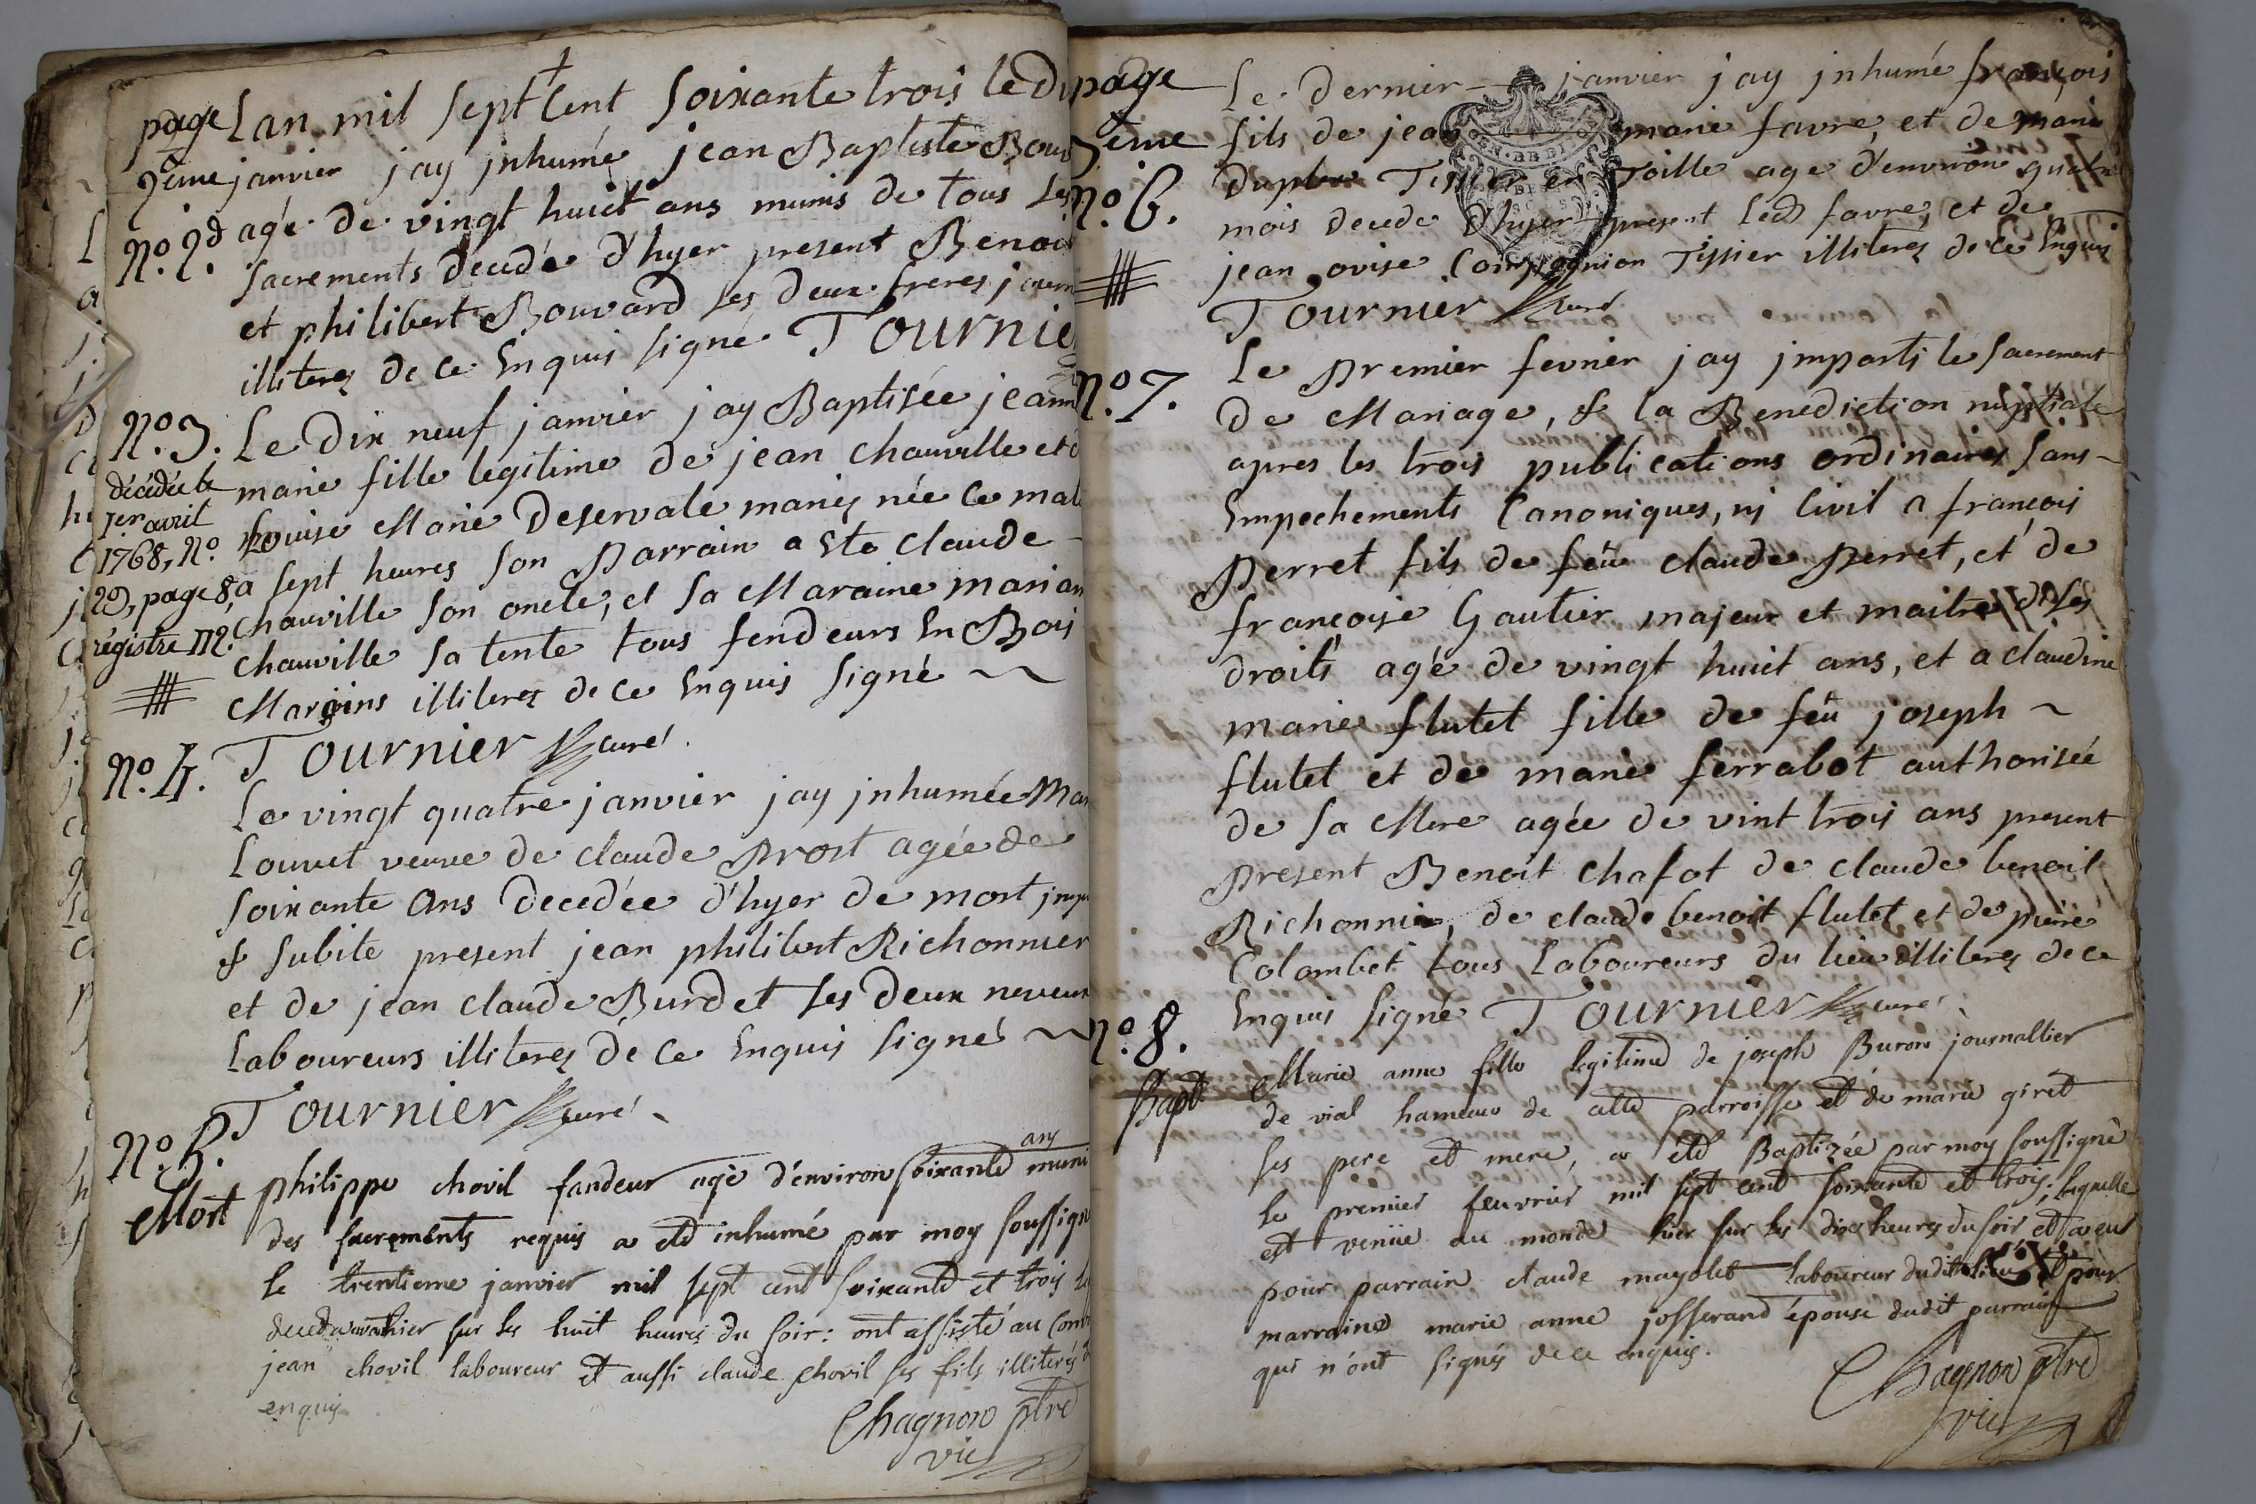 page Lan mil sept Cent Soixante trois le
2eme janvier jay jnhumé jean Baptiste
No. 2d agé de vingt huict ans munis de tous les
sacrements decedé d'hyer present Benoit
et philibert Bouvard ses deux freres
illiteres de ce Enquis signé Tournier
No. 3. Le Dix neuf janvier jay Baptisée
décédée le
1er avril
1768, No.
29, page 8,
régistre M2.
marie fille legitime de jean chauville et
Louise Marie Deservale mariés née ce
a sept heures son Parrain a Ete claude
chauville son oncle, et sa Maraine
chauville sa tente tous fendeurs En Bois
Maroins illiteres de ce Enquis signé
Tournier curé
No. 4.
Le vingt quatre janvier jay jnhumée
Louvet veuve de claude Prost agée de
soixante ans decedée d'hyer de mort
& subite present jean philibert Richonnier
et de jean claude Burdet ses deux neveux
Laboureurs illiteres de ce Enquis signé
Tournier curé
No. 5.
Mort
philippe chovil fandeur agé d'environ soixante ans muni
des sacrements requis a eté inhumé par moy
le trentieme janvier mil sept cent soixante et trois
sur les huit heures du soir: ont assisté au
jean chovil laboureur et aussi claude chovil ses fils illiterés
enquis
Chagnon ptre
vic
page
3eme
No. 6.
Le dernier janvier jay jnhumé françois
fils de jean marie favre, et de marie
Tissier en Toille age d'environ quatre
mois decede d'hyer present led favre, et de
jean ovise Compagnion Tissier illiteres de ce Enquis
Tournier curé
No. 7.
Le Premier fevrier jay jmparti le sacrement
de Mariage, & la Benediction nuptiale
apres les trois publications ordinaires sans
Empechements Canoniques, ni Civil a françois
Perret fils de feu claude Perret, et de
françoise Gautier majeur et maitre de ses
droits agé de vingt huict ans, et a claudine
marie flutet fille de feu joseph
flutet et de marie ferrabot authorisée
de sa Mere agée de vint trois ans present
present Benoit chafot de claude benoit
Richonnier, de claude benoit flutet et de pierre
Colombet tous Laboureurs du lieu illiteres de ce
Enquis signé Tournier curé
No. 8.
Bapt
Marie anne fille legitime de joseph Buron journallier
de vial hameau de cette parroisse et de marie giret
ses pere et mere, a eté Baptizée par moy soussigné
le premier feuvrier mil sept cent soixante et trois; laquelle
est venüe au monde hier sur les dix heures du soir et a eu
pour parrain claude mayolet laboureur dudit lieu et pour
marraine marie anne josserand épouse dudit parrain
qui n'ont signés de ce enquis.
Chagnon ptre
vic